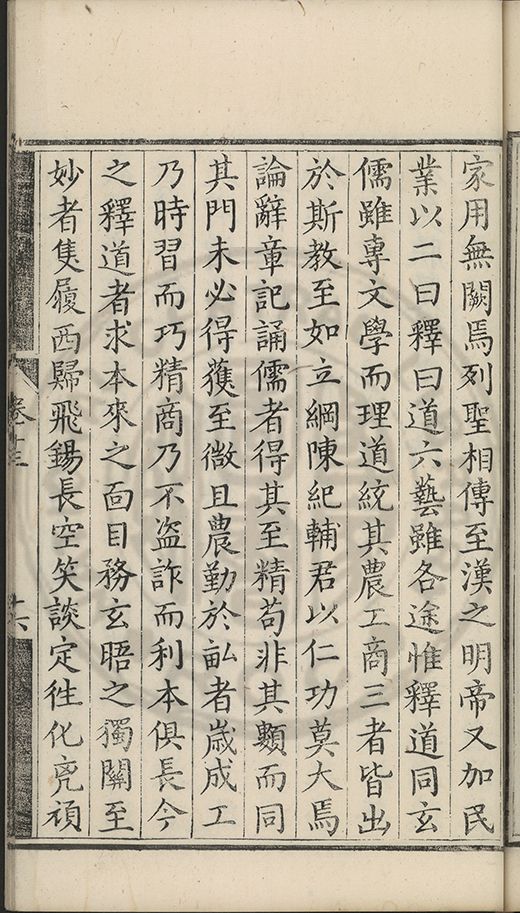 家用無闕焉列聖相傳至漢之明帝又加民
業以二曰釋曰道六藝雖各途惟釋道同玄
儒雖專文學而理道統其農工商三者皆出
於斯教至如立綱陳紀輔君以仁功莫大焉
論辭章記誦儒者得其至精苟非其類而同
其門未必得獲至微且農勤於畝者歲成工
乃時習而巧精商乃不盜詐而利本俱長今
之釋道者求本來之面目務玄晤之獨關至
妙者隻履西歸飛錫長空笑談定往化兇頑
卷十三
十六